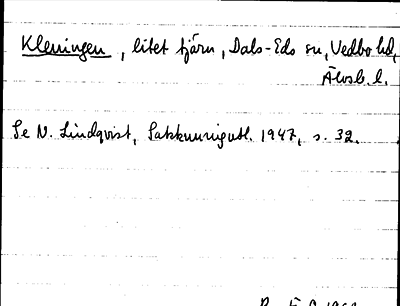 Kleningen, litet tjärn, Dals-Eds sn, Vedbo hd,
Älvsb. l.
Se N. Lindqvist, 1947, s. 32.